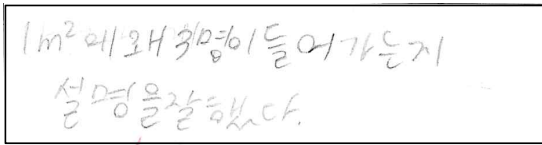 1m²에 왜 9명이 들어가는지
설명을 잘했다.